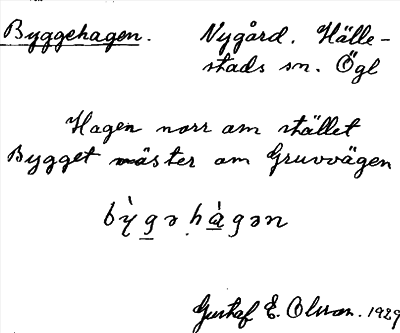 Byggehagen. Nygård. Hälle-
stads sn. Ögl
Hagen norr om stället
Bygget väster om Gruvvägen
bỳgəhàgən
Gustaf E. Olsson. 1929